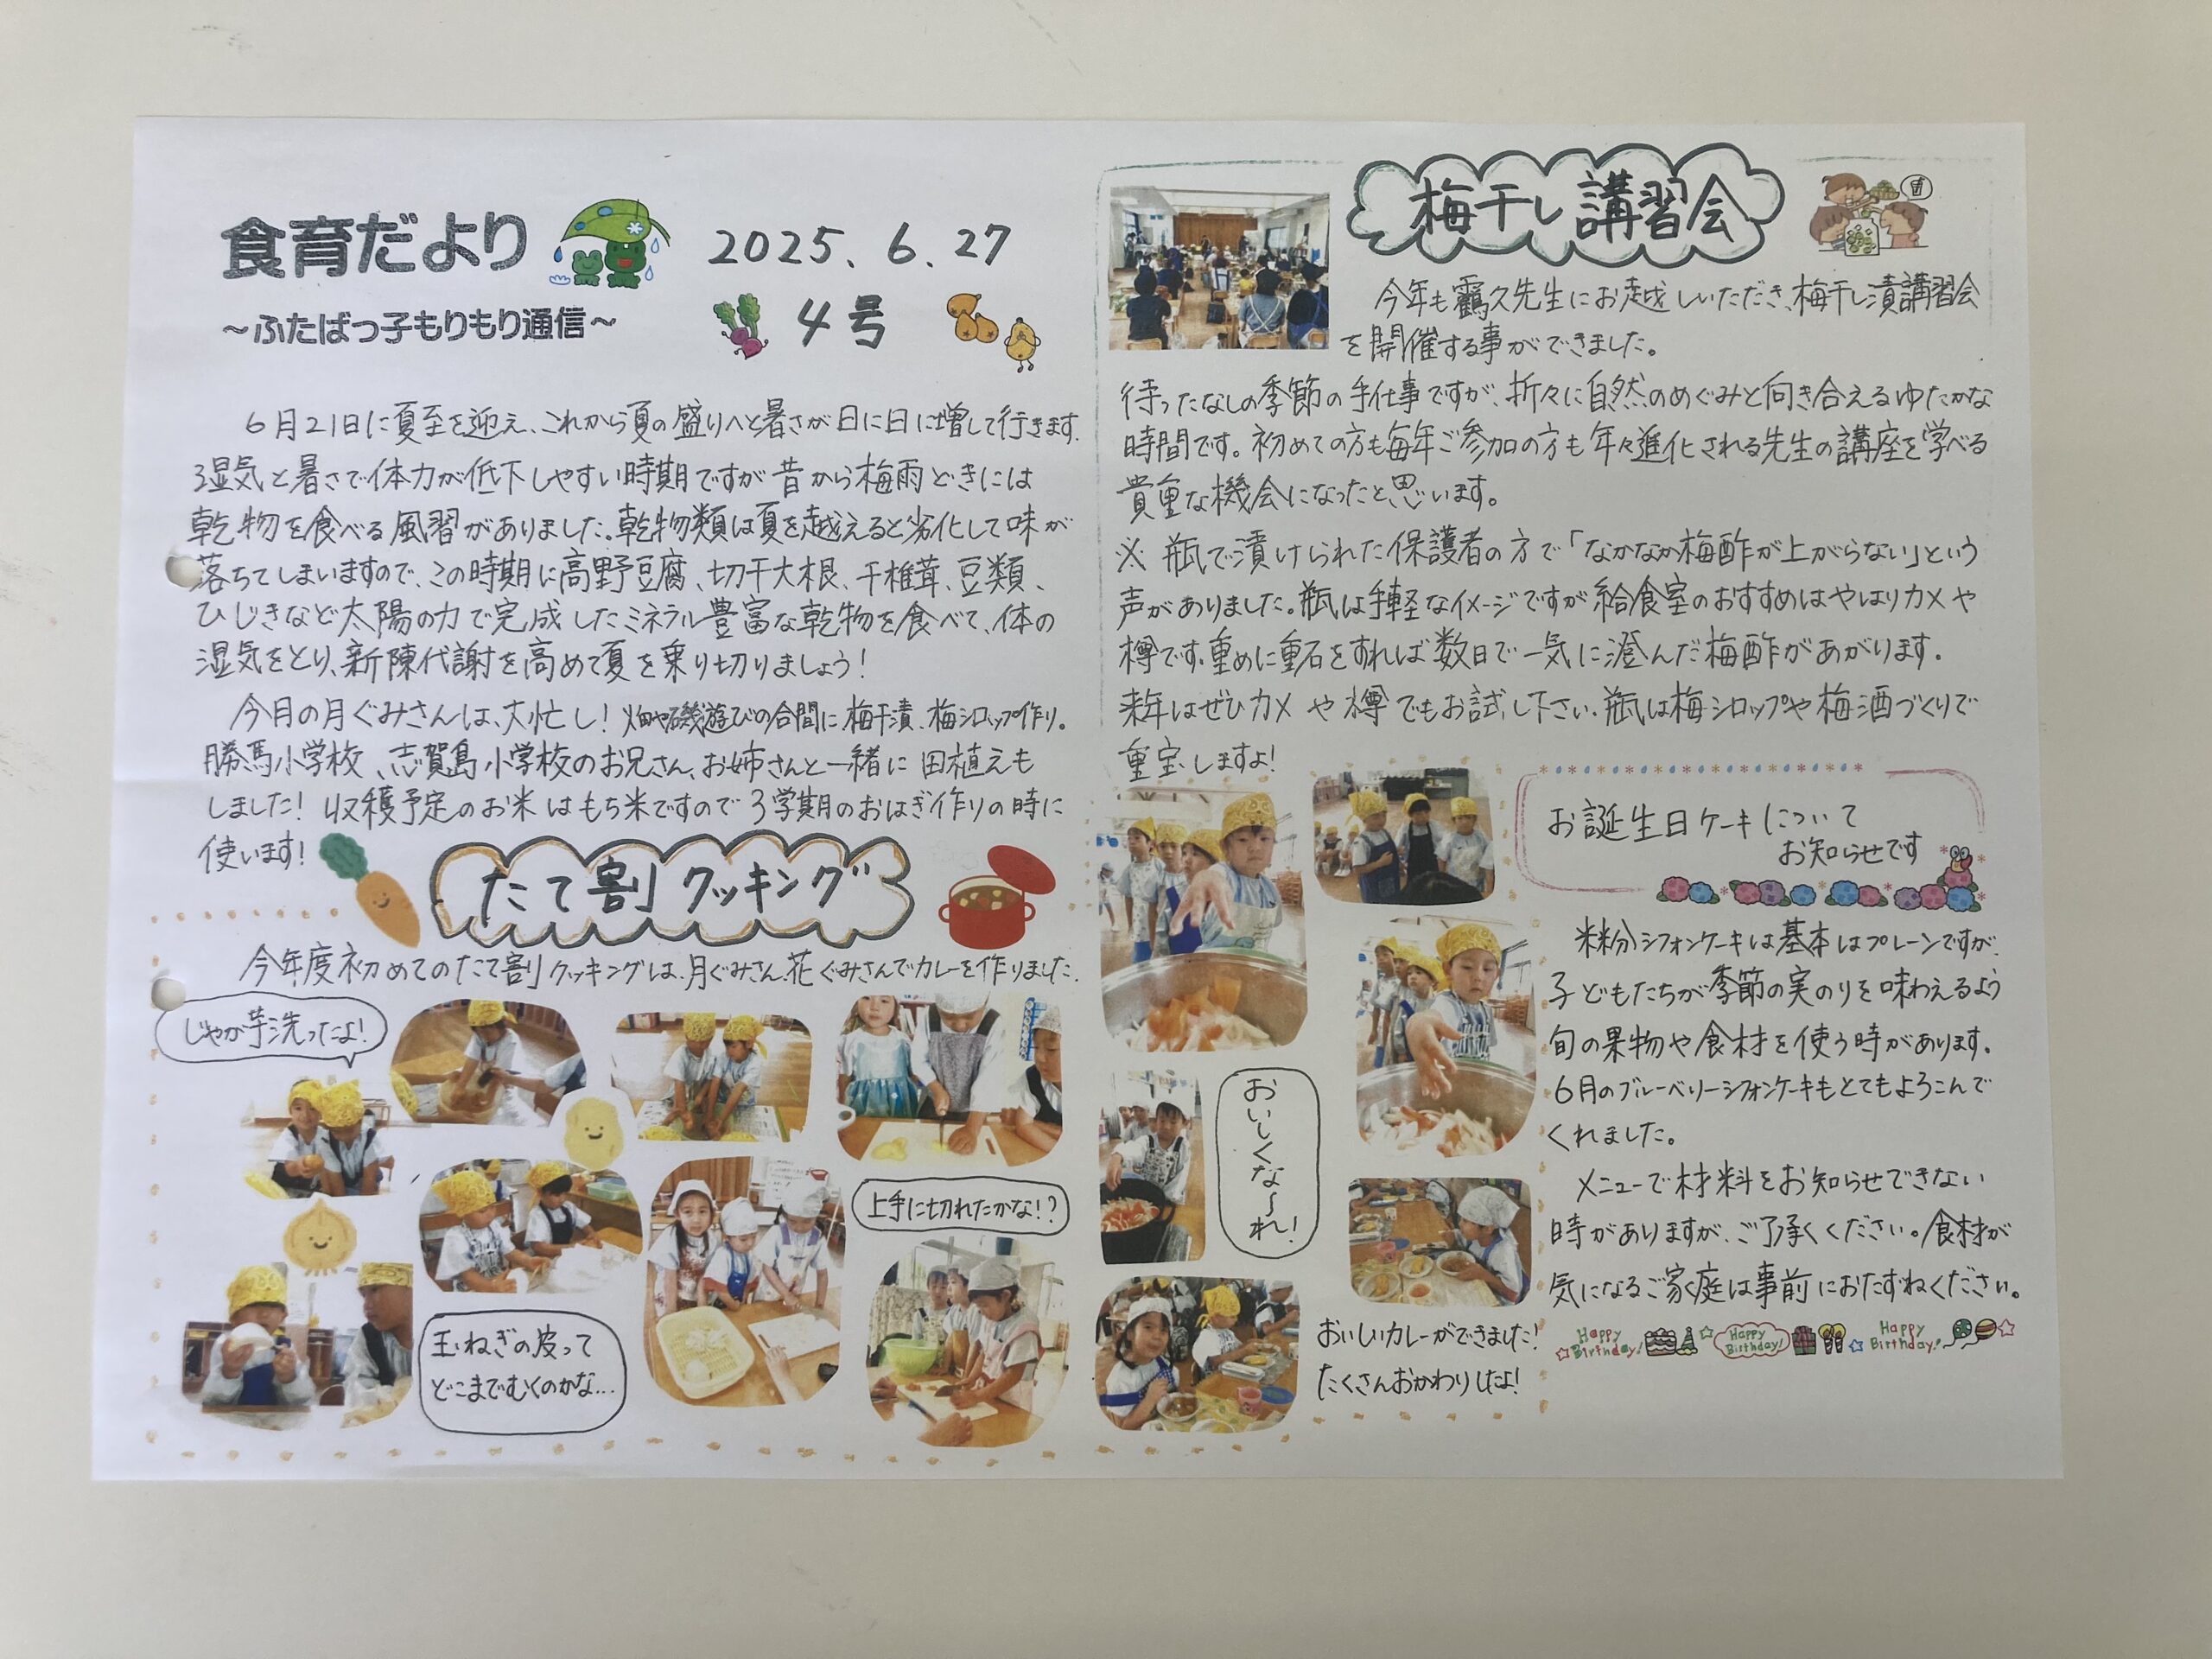 食育だより
～ふたばっ子もりもり通信～
2025.6.27
4号
6月21日に夏至を迎え、これから夏の盛りへと暑さが日に日に増して行きます。
湿気と暑さで体力が低下しやすい時期ですが昔から梅雨どきには
乾物を食べる風習がありました。乾物類は夏を越えると劣化して味が
落ちてしまいますので、この時期に高野豆腐、切干大根、干椎茸、豆類、
ひじきなど太陽の力で完成したミネラル豊富な乾物を食べて、体の
湿気をとり、新陳代謝を高めて夏を乗り切りましょう!
今月の月ぐみさんは、大忙し!畑や磯遊びの合間に梅干漬、梅シロップ作り。
勝馬小学校、志賀島小学校のお兄さん、お姉さんと一緒に田植えも
しました!収穫予定のお米はもち米ですので3学期のおはぎ作りの時に
使います!
たて割クッキング
今年度初めてのたて割クッキングは、月ぐみさん、花ぐみさんでカレーを作りました。
じゃが芋洗ったよ!
上手に切れたかな!?
玉ねぎの皮って
どこまでむくのかな...
梅干し講習会
今年も鶴久先生にお越しいただき、梅干し漬講習会
を開催する事ができました。
待ったなしの季節の手仕事ですが、折々に自然のめぐみと向き合えるゆたかな
時間です。初めての方も毎年ご参加の方も年々進化される先生の講座を学べる
貴重な機会になったと思います。
※瓶で漬けられた保護者の方で「なかなか梅酢が上がらない」という
声がありました。瓶は手軽なイメージですが給食室のおすすめはやはりカメや
樽です。重めに重石をすれば数日で一気に澄んだ梅酢があがります。
来年はぜひカメや樽でもお試し下さい。瓶は梅シロップや梅酒づくりで
重宝しますよ!
おいしくな～れ!
おいしいカレーができました!
たくさんおかわりしたよ!
お誕生日ケーキについて
お知らせです
米粉シフォンケーキは基本はプレーンですが、
子どもたちが季節の実のりを味わえるよう
旬の果物や食材を使う時があります。
6月のブルーベリーシフォンケーキもとてもよろこんで
くれました。
メニューで材料をお知らせできない
時がありますが、ご了承ください。食材が
気になるご家庭は事前におたずねください。
Happy Birthday! Happy Birthday! Happy Birthday!